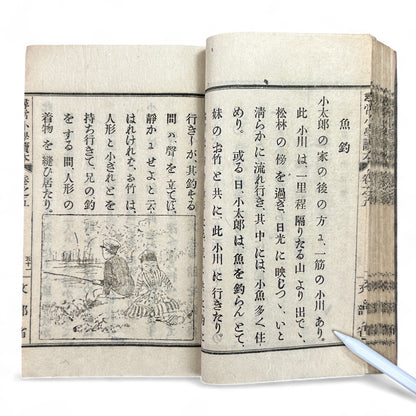 魚釣
小太郎の家の後の方に、一筋の小川あり。
此小川は、一里程隔りたる山より出でヽ、
松林の傍を過ぎ、日光に映じつヽ、いと
清らかに流れ行き、其中には、小魚多く住
めり。或る日、小太郎は、魚を釣らんとて、
妹のお竹と共に、此小川に行きたり。
行きしが、其釣する
間ハ、聲を立てず、
静かにせよと云
はれければ、お竹は、
人形と小ぎれとを
持ち行きて、兄の釣
をする間、人形の
着物を縫ひ居たり。
尋常小學讀本 卷之五
文部省